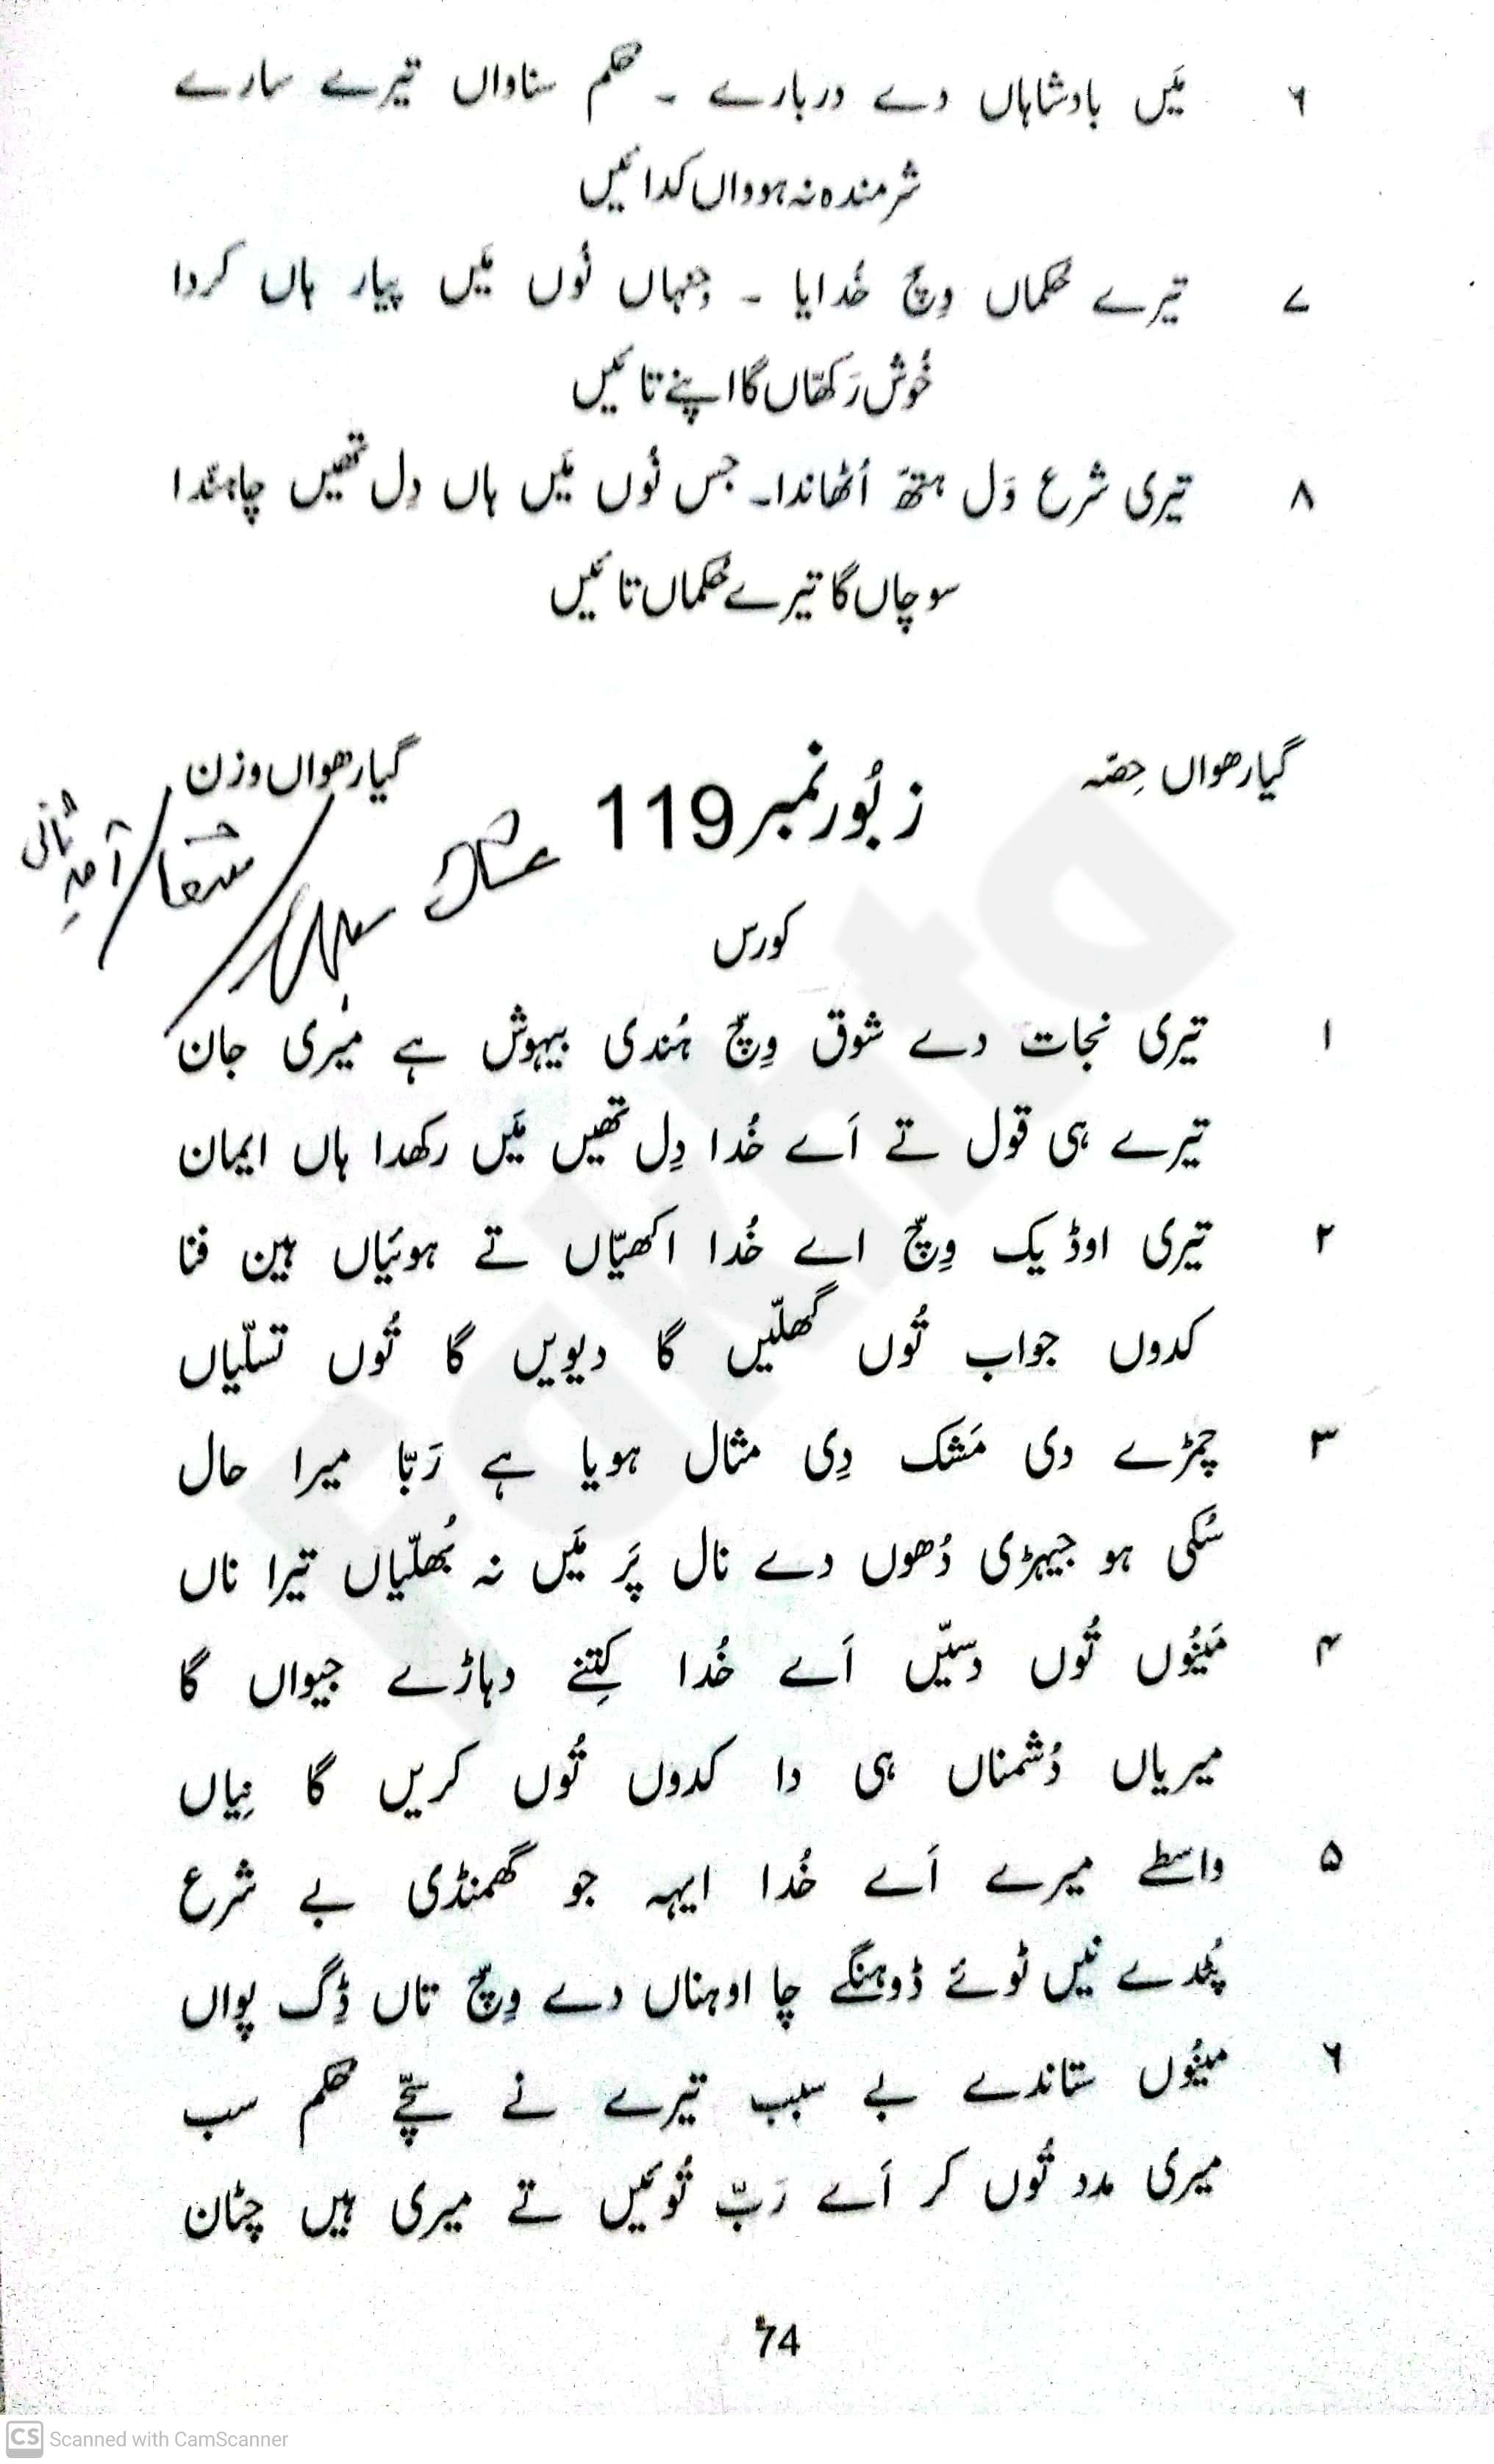 ۶ مَیں بادشاہاں دے دربارے ۔ حکم سناواں تیرے سارے
شرمندہ نہ ہوواں کدائیں
۷ تیرے حُکماں وِچّ خُدایا ۔ جِنہاں نُوں مَیں پیار ہاں کردا
خُوش رَکھّاں گا اپنے تائیں
۸ تیری شرع وَل ہتھّ اُٹھاندا۔ جس نُوں مَیں ہاں دِل تھیں چاہندا
سوچاں گا تیرے حُکماں تائیں
گیارھواں حِصّہ
زبُور نمبر 119
گیارھواں وزن
کورس
۱ تیری نجات دے شوق وِچّ ہُندی بیہوش ہے میری جان
تیرے ہی قول تے اَے خُدا دِل تھیں مَیں رکھدا ہاں ایمان
۲ تیری اوڈیک وِچّ اے خُدا اکھیّاں تے ہوئیاں ہین فنا
کدوں جواب تُوں گھلّیں گا دیویں گا تُوں تسلّیاں
۳ چمڑے دی مَشک دِی مثال ہویا ہے رَبّا میرا حال
سُکی ہو جیہڑی دُھوں دے نال پَر مَیں نہ بُھلّیاں تیرا ناں
۴ مَینُوں تُوں دسیّں اَے خُدا کِتنے دہاڑے جیواں گا
میریاں دُشمناں ہی دا کدوں تُوں کریں گا نِیاں
۵ واسطے میرے اَے خُدا ایہہ جو گھمنڈی بے شرع
پُٹدے نیں ٹوئے ڈوہنگے چا اوہناں دے وِچّ تاں ڈِگ پواں
۶ مینُوں ستاندے بے سبب تیرے نے سچّے حکم سب
میری مدد تُوں کر اَے رَبّ تُوئیں تے میری ہیں چٹان
74
CS Scanned with CamScanner